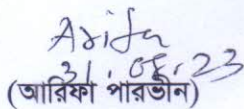 Arifa
31.08.23
(আরিফা পারভীন)